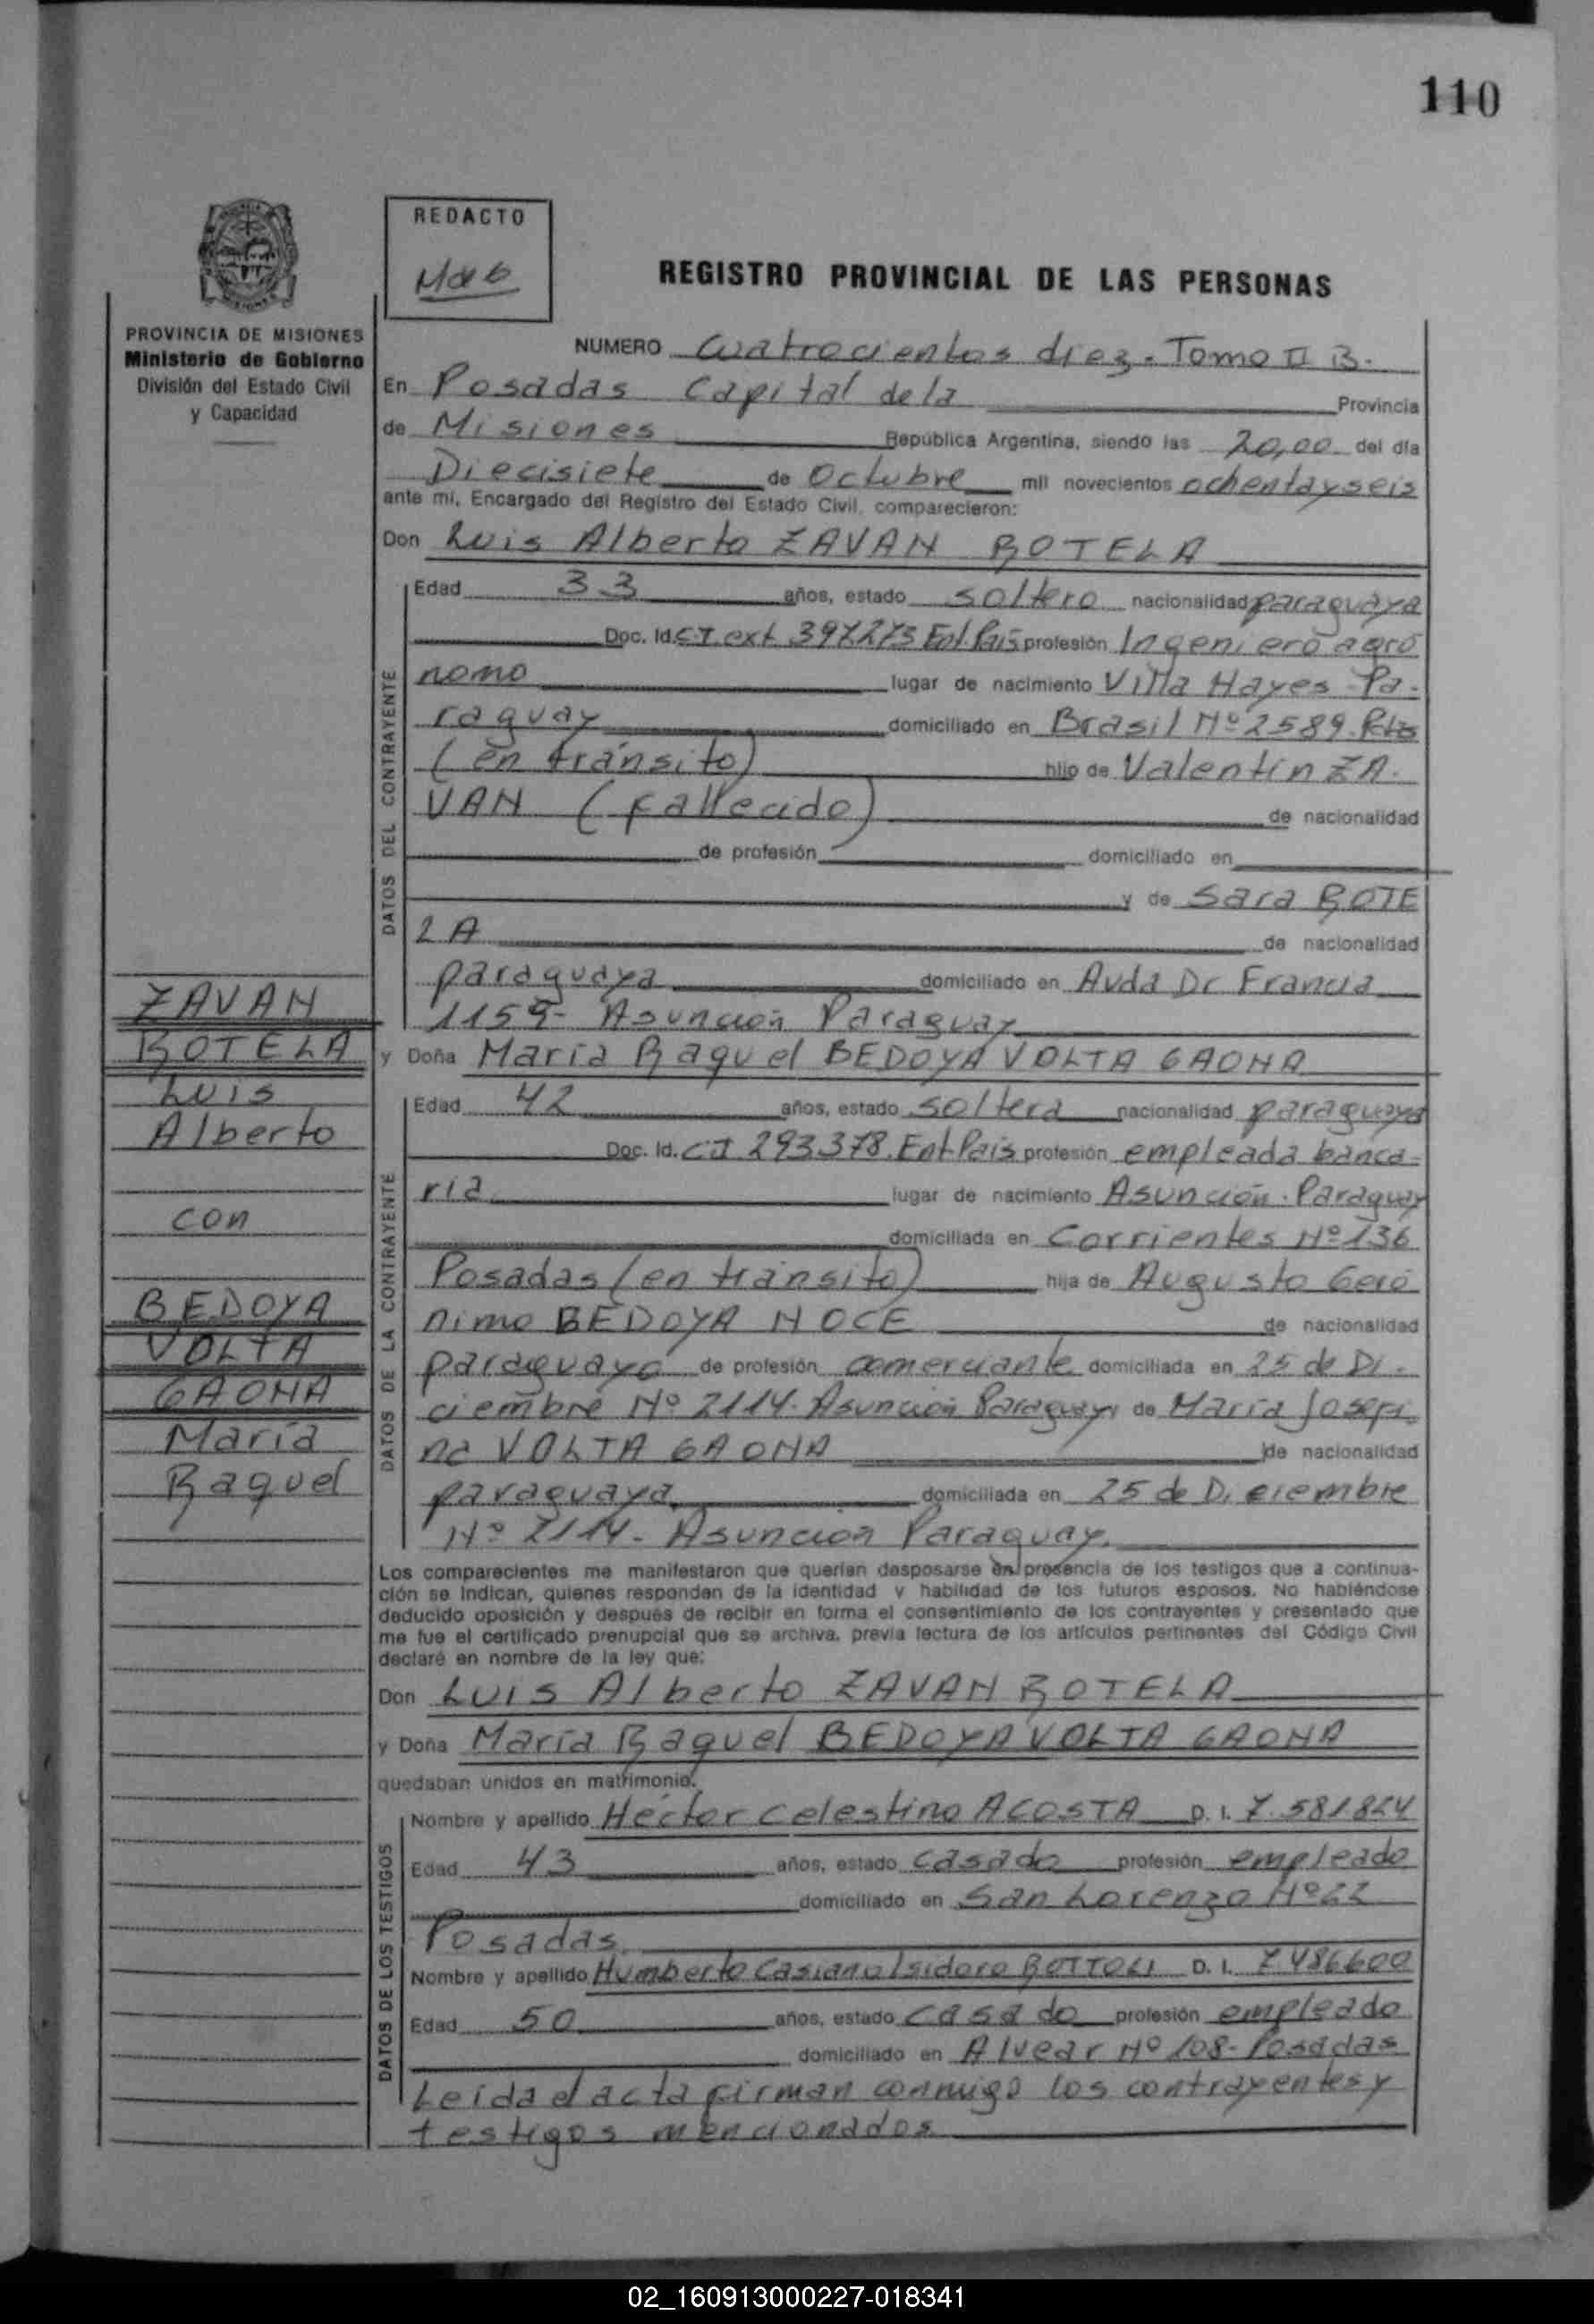 110
REDACTO
REGISTRO PROVINCIAL DE LAS PERSONAS
PROVINCIA DE MISIONES
Ministerio de Gobierno
División del Estado Civil
y Capacidad
NUMERO Cuatrocientos diez. Tomo II B.
En Posadas Capital de la Provincia
de Misiones República Argentina, siendo las 20,00 del día
Diecisiete de Octubre mil novecientos ochentayseis
ante mí, Encargado del Registro del Estado Civil, comparecieron:
Don Luis Alberto ZAVAN ROTELA
DATOS DEL CONTRAYENTE
Edad 33 años, estado soltero nacionalidad paraguaya
Doc. Id. C.I ext 397273 Ent. País profesión Ingeniero agró
nomo lugar de nacimiento Villa Hayes Pa-
raguay domiciliado en Brasil Nº 2589.
(en tránsito) hijo de Valentín ZA-
VAN (fallecido) de nacionalidad
de profesión domiciliado en
y de Sara ROTE
LA de nacionalidad
paraguaya domiciliado en Avda Dr Francia
1159- Asunción Paraguay
y Doña María Raquel BEDOYA VOLTA GAONA
DATOS DE LA CONTRAYENTE
Edad 42 años, estado soltera nacionalidad paraguaya
Doc. Id. C.I 293.378. Ent. País profesión empleada banca-
ria lugar de nacimiento Asunción. Paraguay
domiciliada en Corrientes Nº 136
Posadas (en tránsito) hija de Augusto Geró
nimo BEDOYA NOCE de nacionalidad
paraguaya de profesión comerciante domiciliada en 25 de Di-
ciembre Nº 2114. Asunción Paraguay y de María Josefi-
na VOLTA GAONA de nacionalidad
paraguaya domiciliada en 25 de Diciembre
Nº 2114. Asunción Paraguay.
ZAVAN
ROTELA
Luis
Alberto
con
BEDOYA
VOLTA
GAONA
María
Raquel
Los comparecientes me manifestaron que querían desposarse en presencia de los testigos que a continua-
ción se indican, quienes responden de la identidad y habilidad de los futuros esposos. No habiéndose
deducido oposición y después de recibir en forma el consentimiento de los contrayentes y presentado que
me fue el certificado prenupcial que se archiva, previa lectura de los artículos pertinentes del Código Civil
declaré en nombre de la ley que:
Don Luis Alberto ZAVAN ROTELA
y Doña María Raquel BEDOYA VOLTA GAONA
quedaban unidos en matrimonio.
DATOS DE LOS TESTIGOS
Nombre y apellido Héctor Celestino ACOSTA D. I. 7.581824
Edad 43 años, estado casado profesión empleado
domiciliado en San Lorenzo Nº 22
Posadas.
Nombre y apellido Humberto Casiano Isidoro BOTTOLI D. I. 7.486600
Edad 50 años, estado casado profesión empleado
domiciliado en Alvear Nº 108- Posadas
Leída el acta firman conmigo los contrayentes y
testigos mencionados
02_160913000227-018341